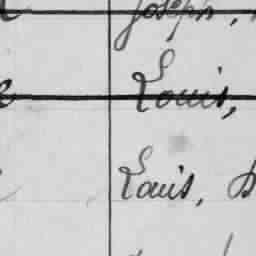 Joseph,
Louis,
Louis,